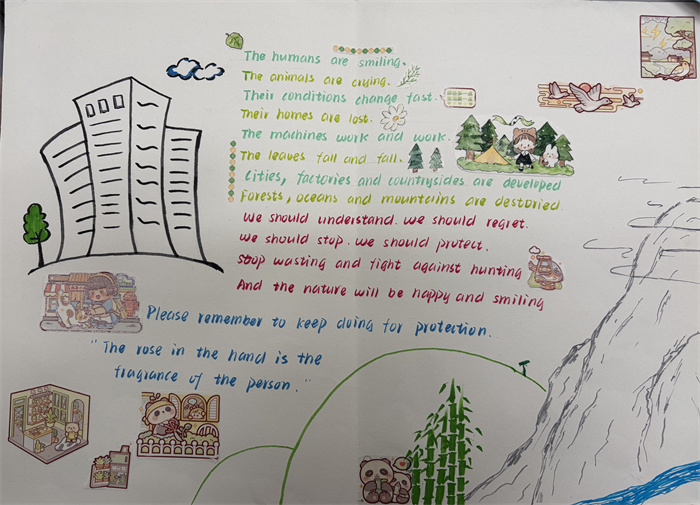 The humans are smiling.
The animals are crying.
Their conditions change fast.
Their homes are lost.
The machines work and work.
The leaves fall and fall.
Cities, factories and countrysides are developed
Forests, oceans and mountains are destoried.
We should understand. We should regret.
We should stop. We should protect.
Stop wasting and fight against hunting
And the nature will be happy and smiling
Please remember to keep doing for protection.
"The rose in the hand is the
fragrance of the person."